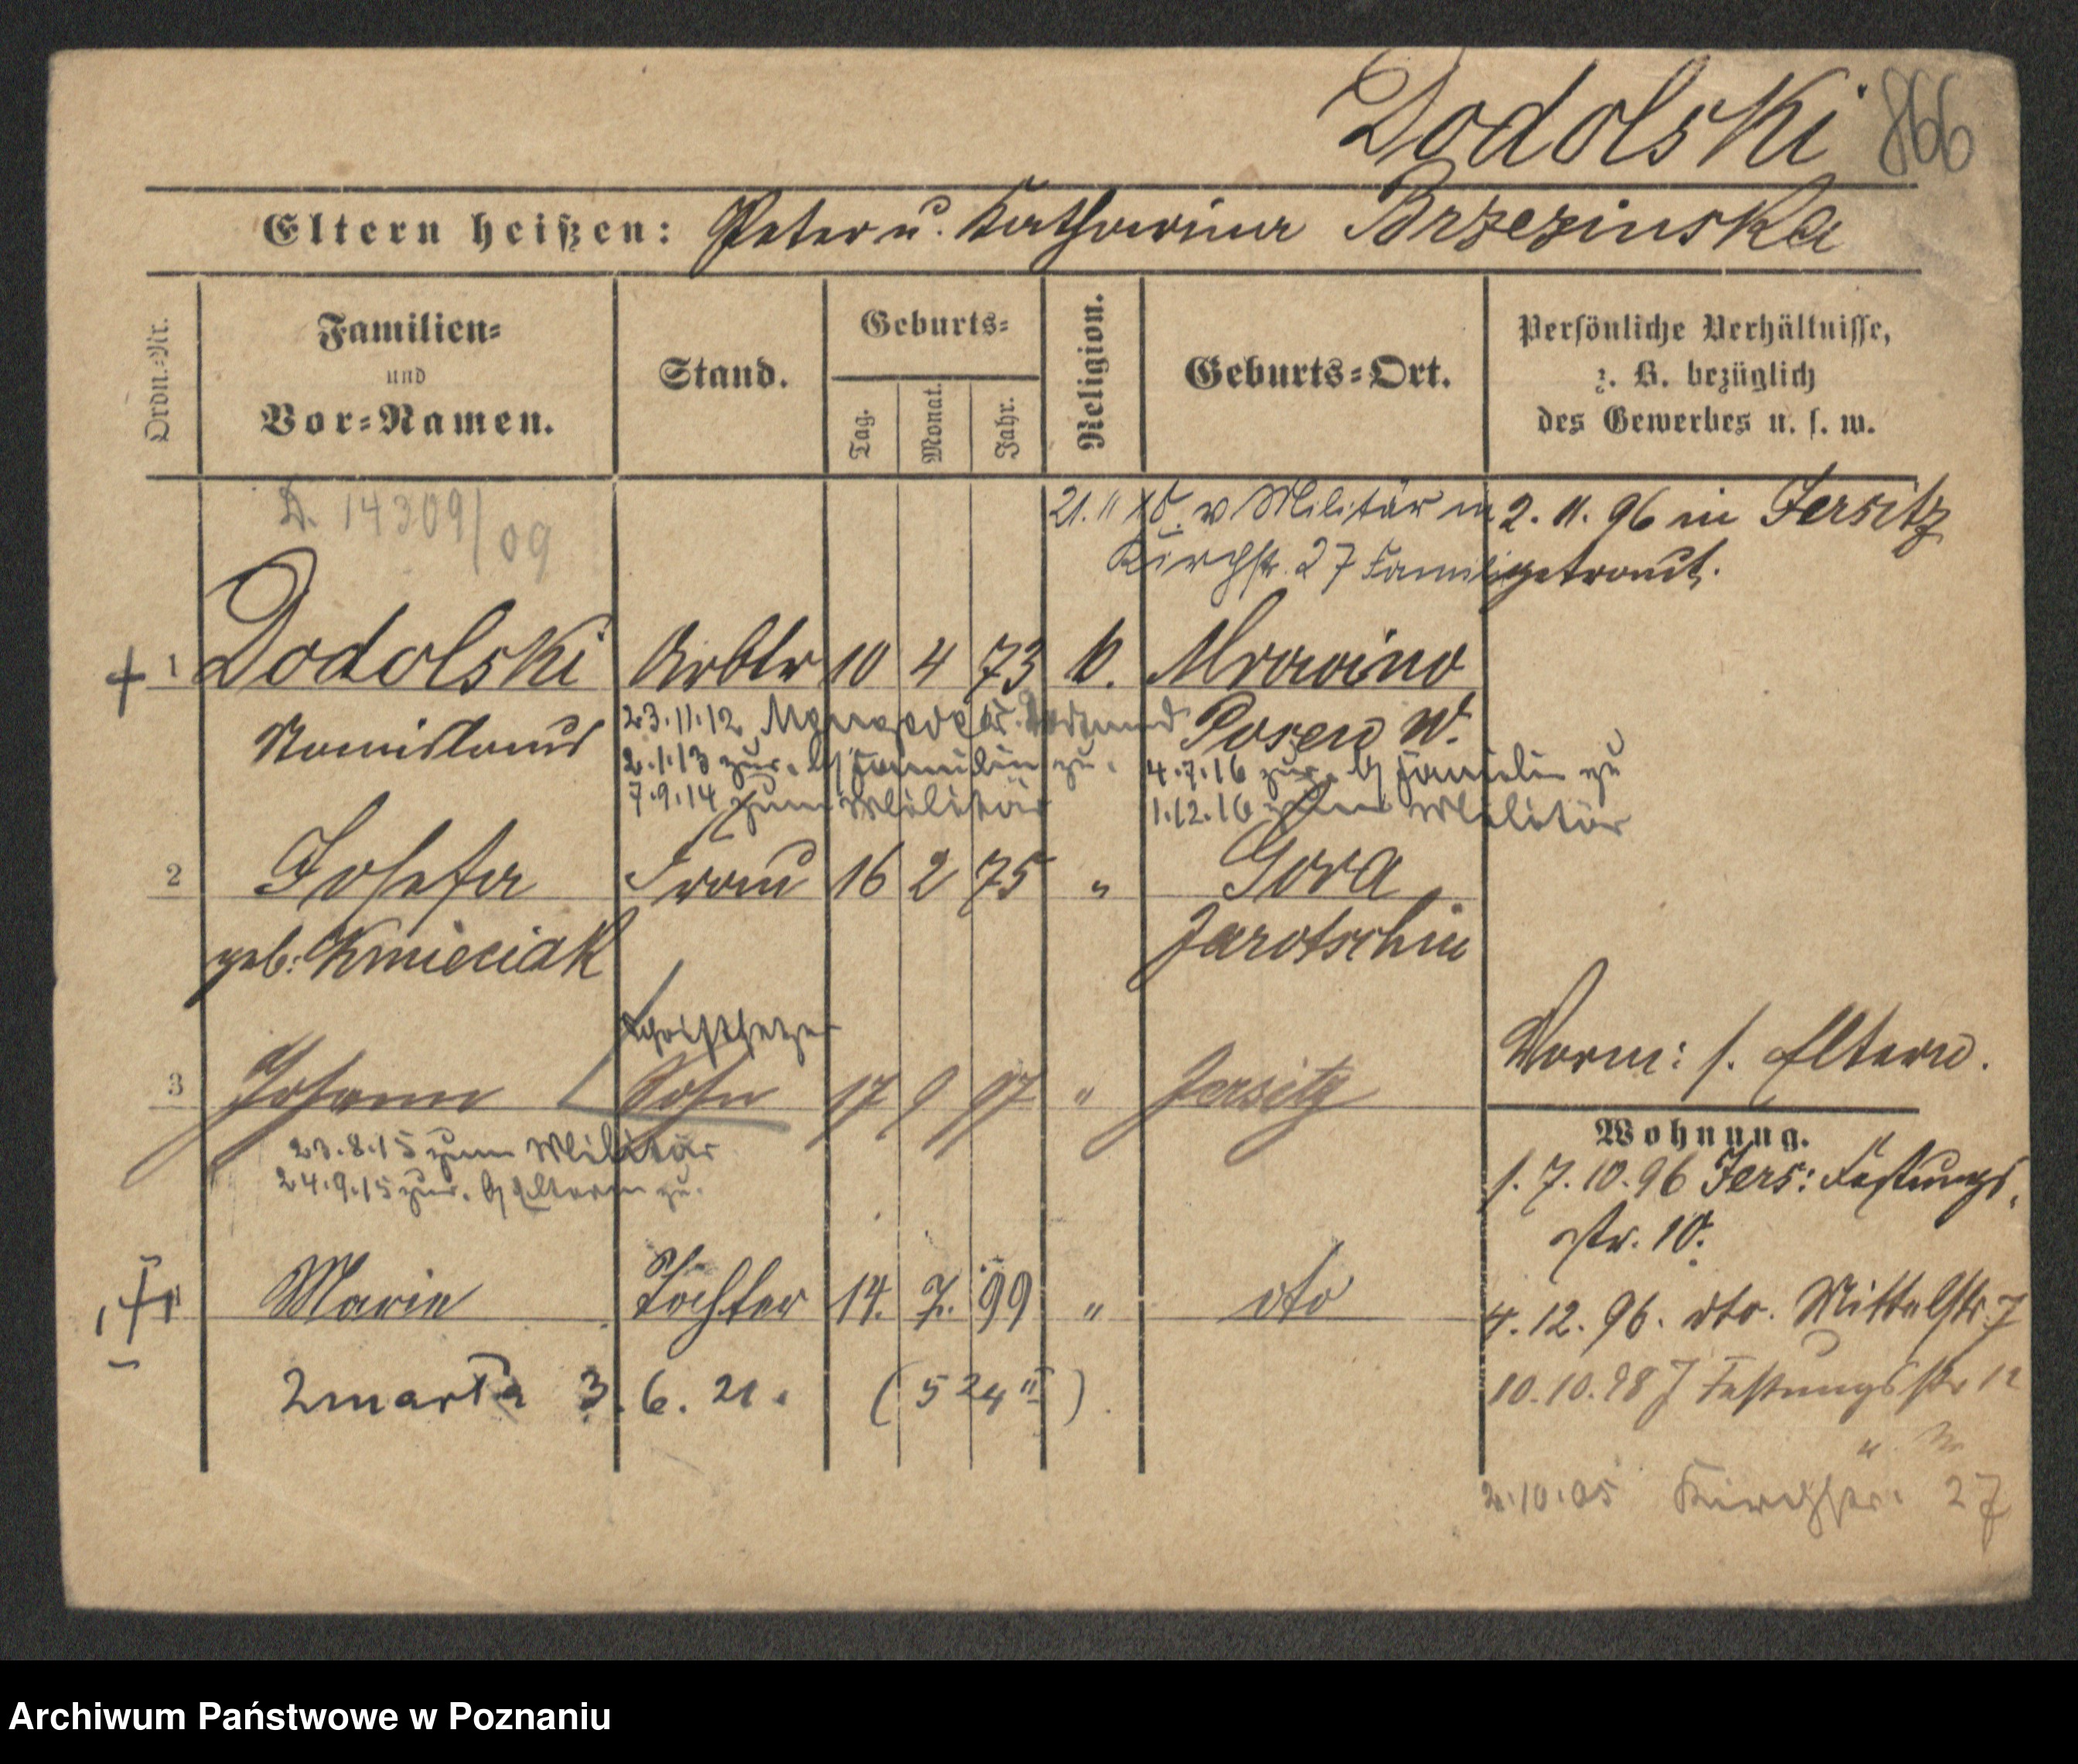 Dodolski 866
Eltern heißen: Peter u. Katharina Brzezinska
Ordn.-Nr.
Familien-
und
Vor-Namen.
Stand.
Geburts-
Tag.
Monat.
Jahr.
Religion.
Geburts-Ort.
Persönliche Verhältnisse,
z. B. bezüglich
des Gewerbes u. s. w.
A. 14309/09
21. 11 18. v Militär in
Kirchstr. 27 Famili
2. 11. 96 in Jersitz
getraut.
1 Dodolski Arbtr 10 4 73 k. Mrowino
Stanislaus Posen W.
23.11.12
2.1.13 zur. Familie zu.
7.9.14 zum Militär
4.7.16 zur. Familie zu
1.12.16 zum Militär
2 Josefa Frau 16 2 75 " Gora
geb: Kmieciak Jarotschin
Schriftsetzer
3 Johann Sohn 17 9 97 " Jersitz
23.8.15 zum Militär
24.9.15 zur. Eltern zu.
Vorm: s. Eltern.
Wohnung.
1. 7. 10. 96 Jers: Festungs
str. 10.
Marie Tochter 14. 7. 99 " dto
4. 12. 96. dto. Mittelstr. 7
Zmarła 3. 6. 21. (524 II)
10. 10. 98 J Festungsstr 12
2.10.05 Kirchstr. 27
Archiwum Państwowe w Poznaniu